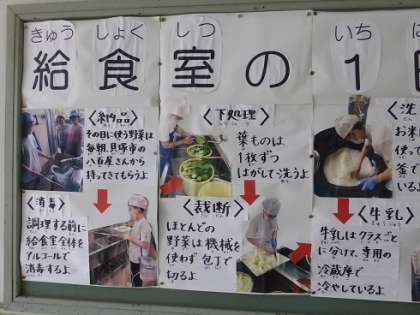 きゅう しょく しつ いち
給食室の1
〈納品〉
その日に使う野菜は
毎朝、貝塚市の
八百屋さんから
持ってきてもらうよ
〈消毒〉
調理する前に
給食室全体を
アルコールで
消毒するよ
〈下処理〉
葉ものは
1枚ずつ
はがして洗うよ
〈裁断〉
ほとんどの
野菜は機械を
使わず包丁で
切るよ
〈洗
お米
使っ
釜で
いる
〈牛乳〉
牛乳はクラスごと
に分けて、専用の
冷蔵庫で
冷やしているよ